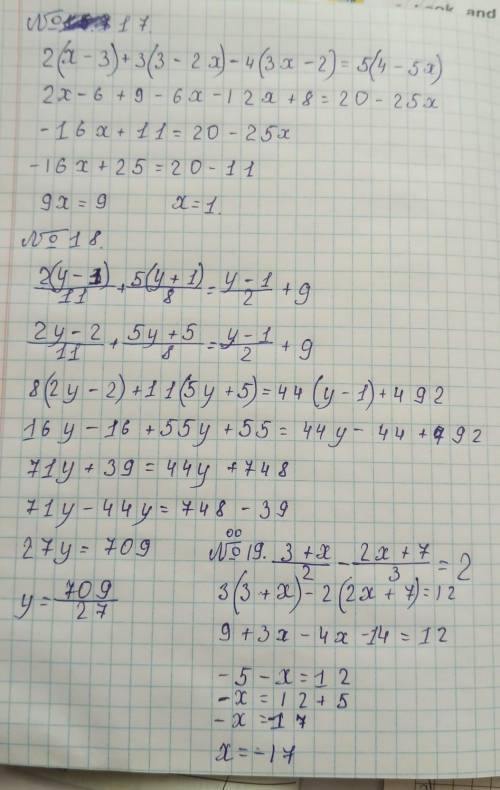 № 17.
2(x-3)+3(3-2x)-4(3x-2)=5(4-5x)
2x-6+9-6x-12x+8=20-25x
-16x+11=20-25x
-16x+25=20-11
9x=9 x=1.
№18.
2(y-1)/11 + 5(y+1)/8 = y-1/2 + 9
2y-2/11 + 5y+5/8 = y-1/2 + 9
8(2y-2)+11(5y+5)=44(y-1)+492
16y-16+55y+55=44y-44+792
71y+39=44y+748
71y-44y=748-39
27y=709
y=709/27
№19. 3+x/2 - 2x+7/3 = 2
3(3+x)-2(2x+7)=12
9+3x-4x-14=12
-5-x=12
-x=12+5
-x=17
x=-17